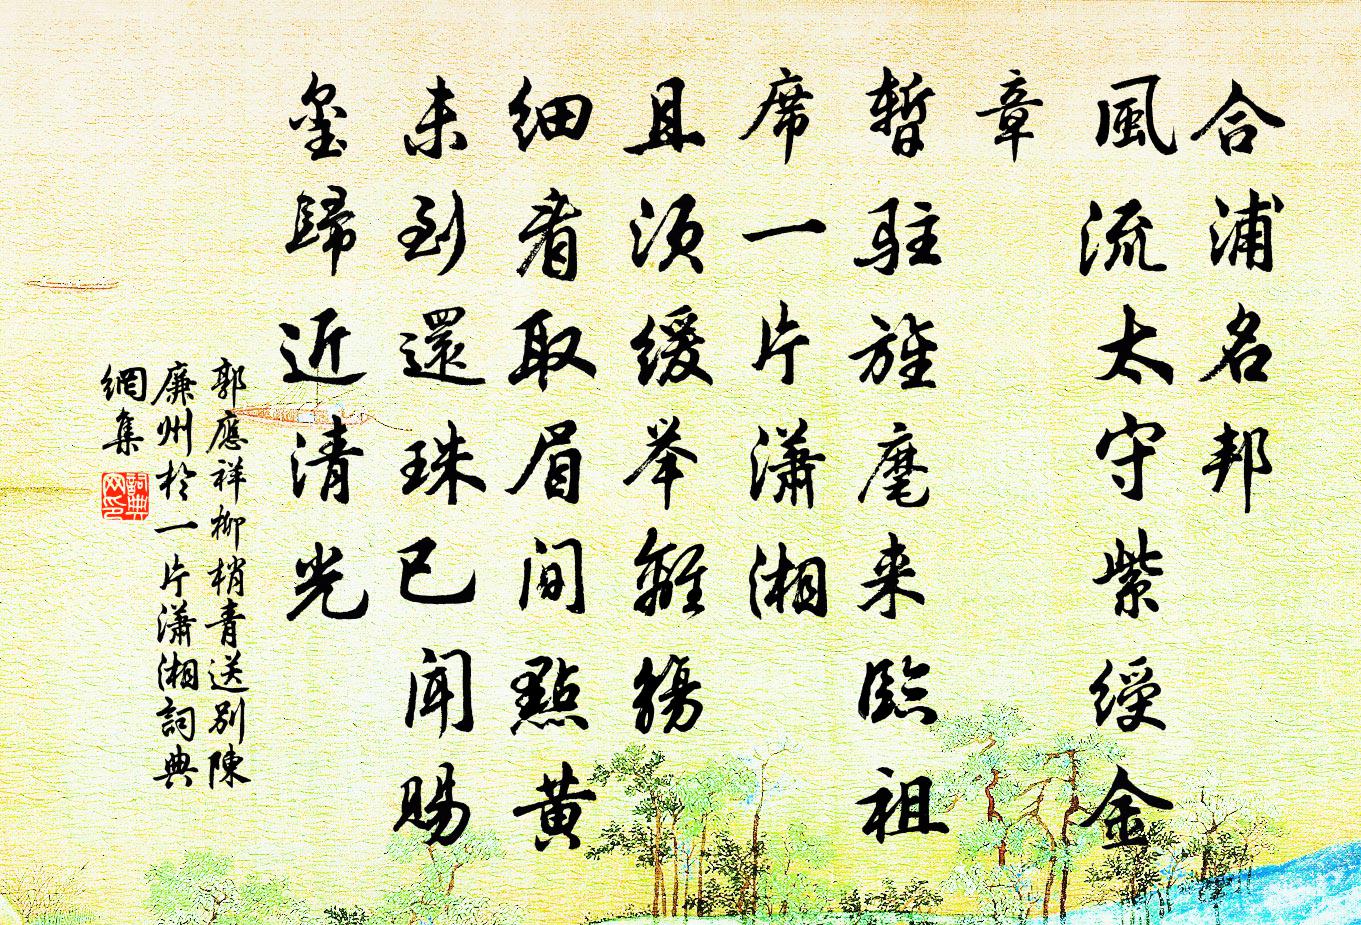 合浦名邦
風流太守紫綬金
章
暫駐旌麾来臨祖
席一片瀟湘
且須緩举離觴
細看取眉間點黄
未到還珠已聞賜
璽歸近清光
郭應祥柳梢青送别陳
廉州於一片瀟湘詞典
網集
詞典
网印